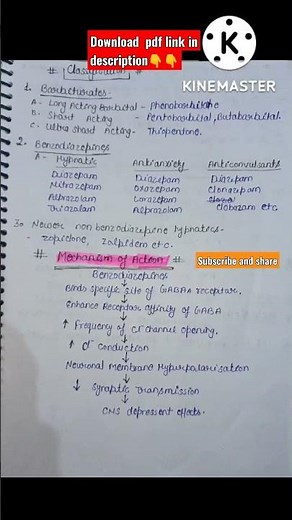 Download pdf link in
description👇👇
K
KINEMASTER
# Classification #
1. Barbiturates-
A- Long Acting Barbital - Phenobarbitone
B- Short Acting - Pentobarbital, Butabarbital.
C. Ultra short Acting- Thiopentone.
2. Benzodiazepines
A- Hypnotic Antianxiety Anticonvulsants
Diazepam Diazepam Diazepam
Nitrazepam Oxazepam Clonazepam
Alprazolam Lorazepam
Triazolam Alprazolam Clobazam etc
3. Newer non benzodiazepine hypnotics-
- zopiclone, zolpidem etc.
# Mechanism of Action #
Subscribe and share
Benzodiazepines
↓
Binds specific site of GABAA receptor.
↓
Enhance Receptor affinity of GABA
↓
↑ Frequency of Cl⁻ channel opening.
↓
↑ Cl⁻ conduction
↓
Neuronal Membrane Hyperpolarisation
↓
↓ Synaptic Transmission
↓
CNS depressent effects.